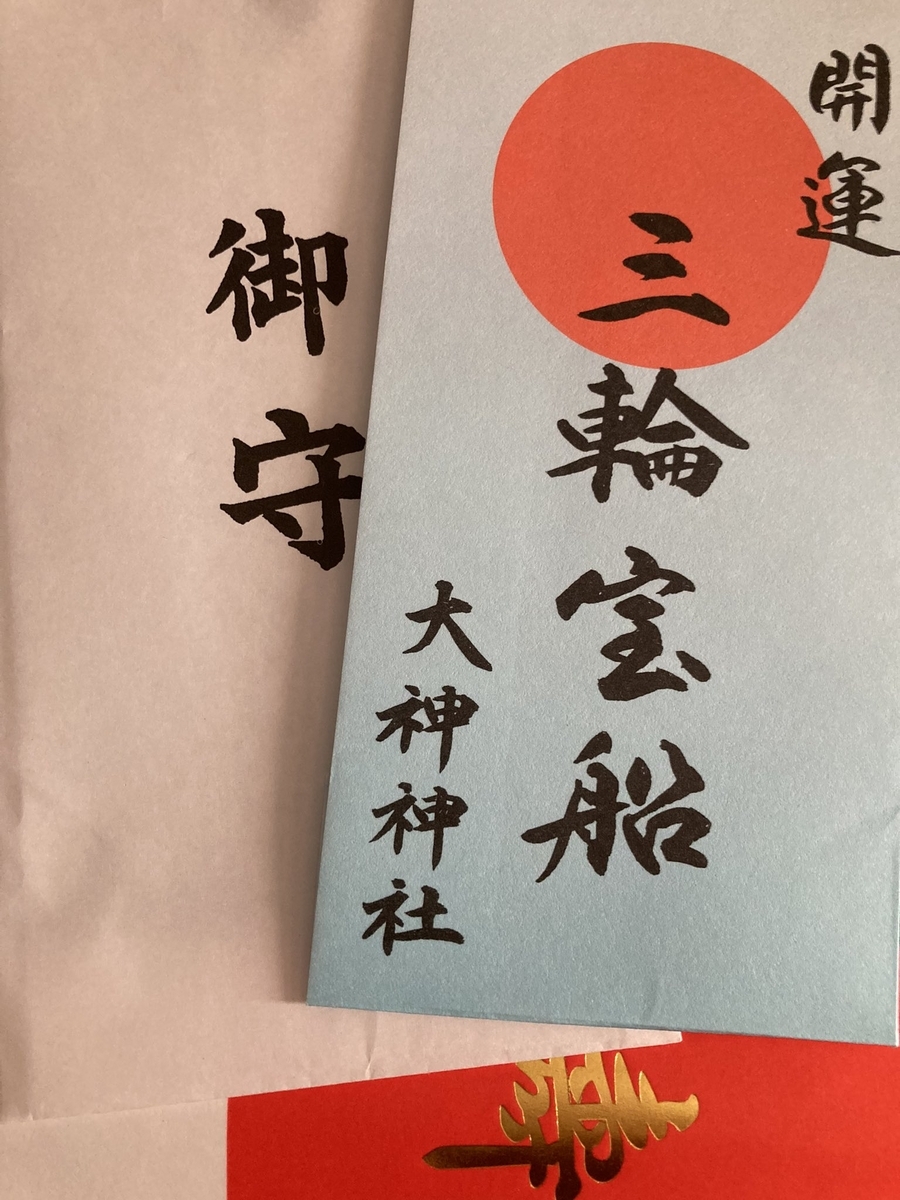 開運
三輪宝船
大神神社
御守
寿